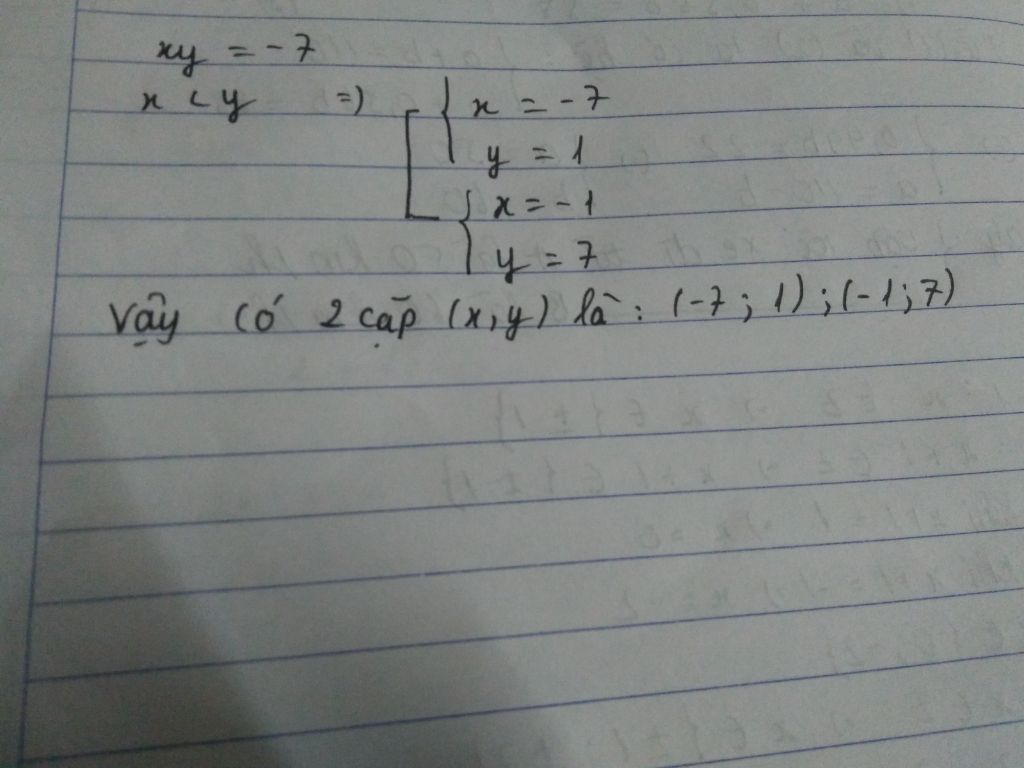 xy = -7
x < y => x = -7
y = 1
x = -1
y = 7
Vậy có 2 cặp (x,y) là: (-7; 1); (-1; 7)